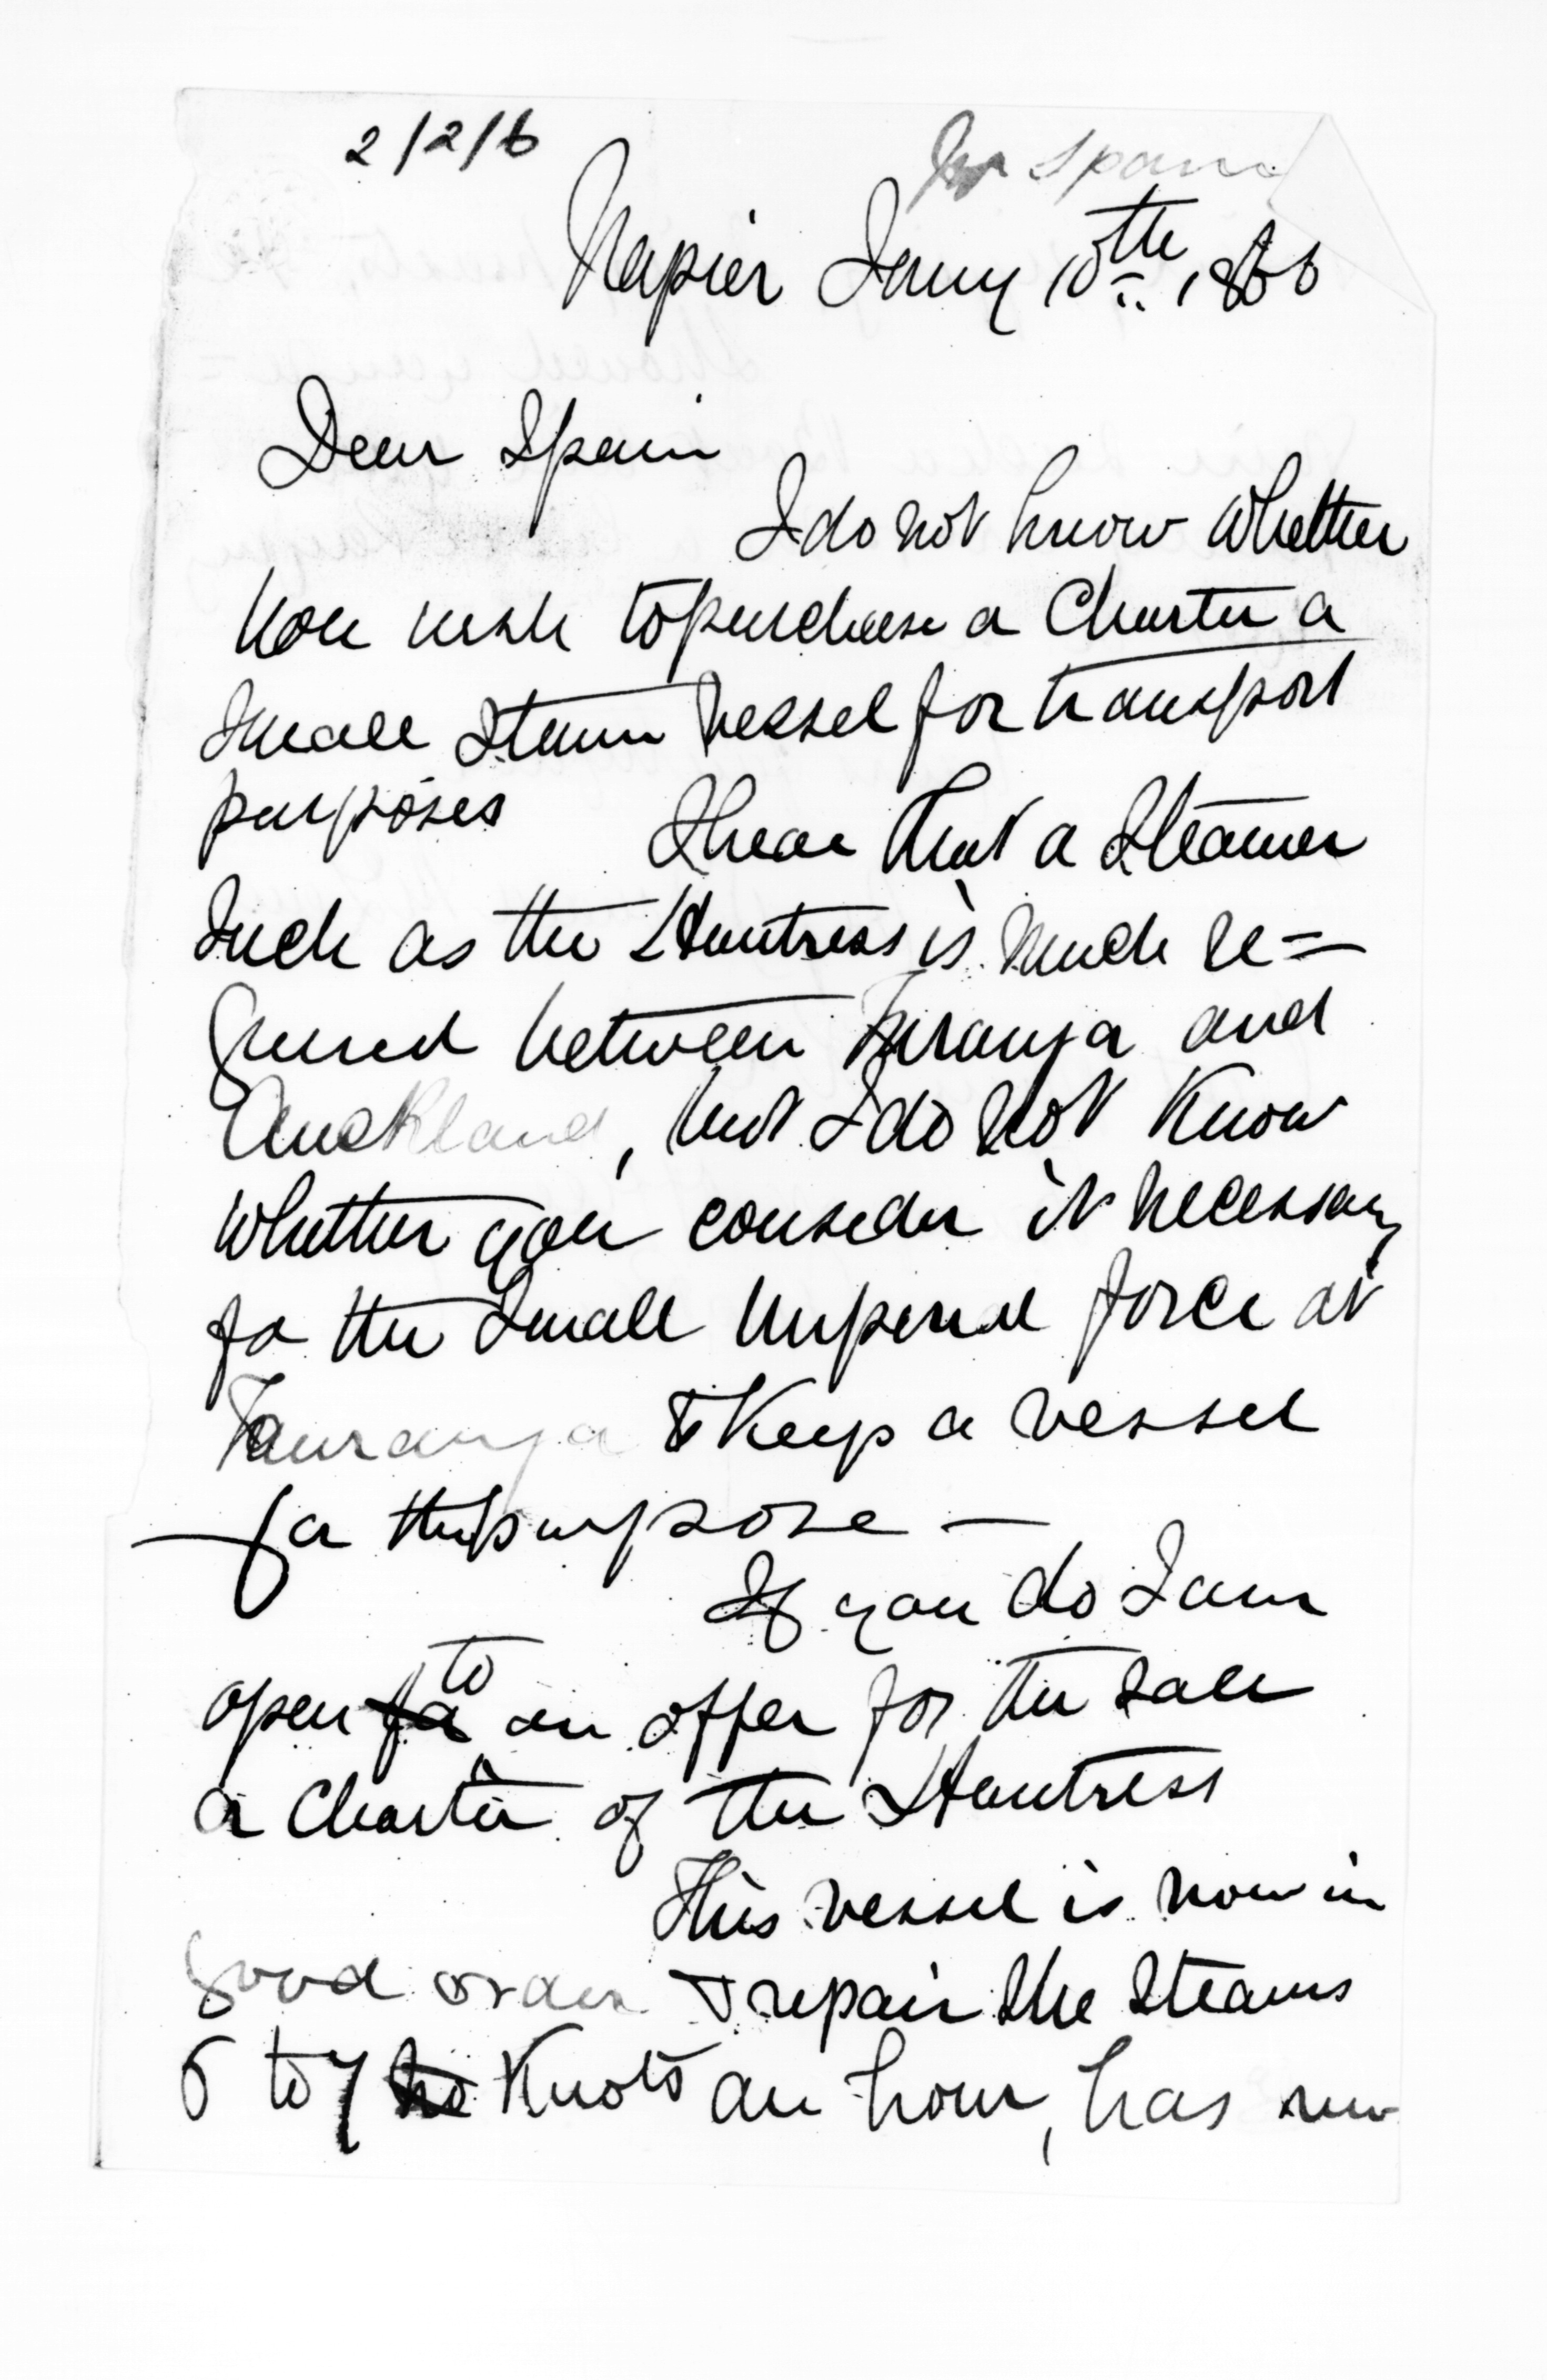 2/2/6
Spain
Napier Jany 10th 1866
Dear Spain
I do not know whether
you wish to purchase or Charter a
small Steam Vessel for transport
purposes I hear that a Steamer
such as the Huntress is much re=
quired between Turanga and
Auckland, but I do not know
whether you consider it necessary
for the small Imperial force at
Tauranga to Keep a vessel
for this purpose —
If you do I am
open for to an offer for the sale
or Charter of the Huntress
This vessel is now in
good order & repair She Steams
6 to 7 Knots an hour, has